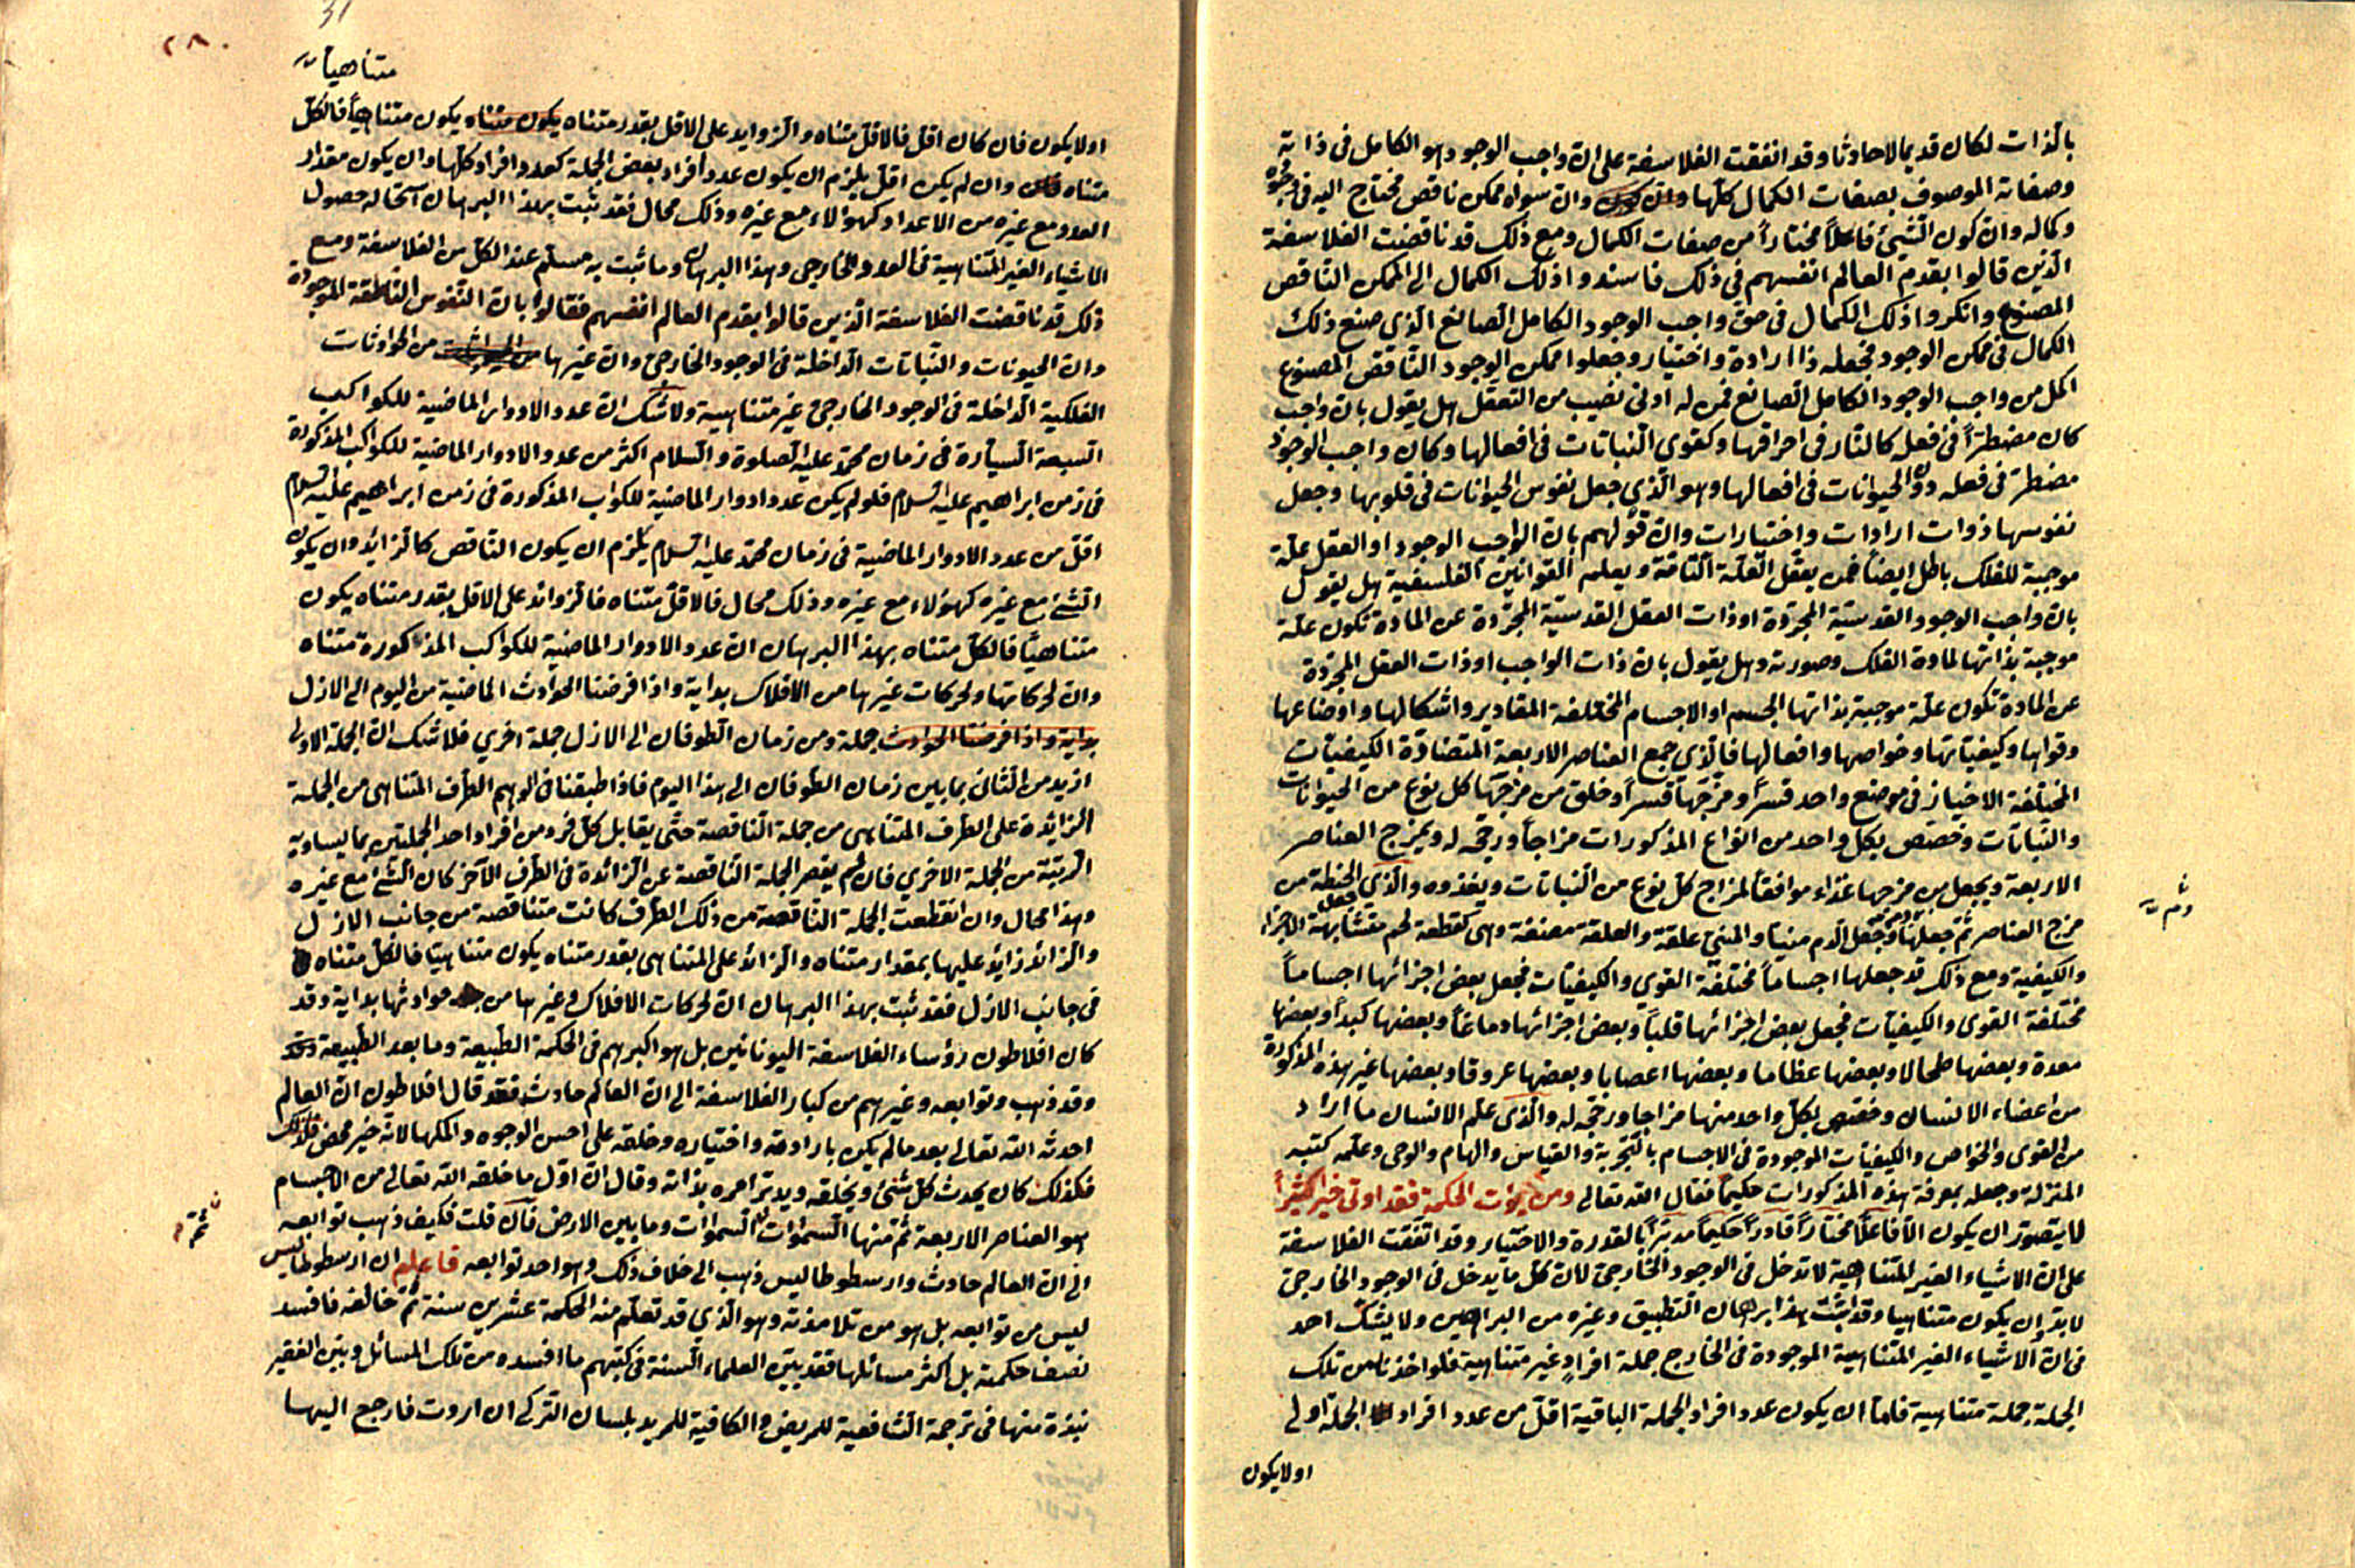 بالذات لكان قديما لا حادثا وقد اتفقت الفلاسفة على ان واجب الوجود هو الكامل في ذاته
وصفاته الموصوف بصفات الكمال كلها وان سواه ممكن ناقص محتاج اليه في وجوده
وكماله وان كون الشئ فاعلاً مختاراً من صفات الكمال ومع ذلك قد ناقضت الفلاسفة
الذين قالوا بقدم العالم انفسهم في ذلك فاسندوا ذلك الكمال الى الممكن الناقص
المصنوع وانكروا ذلك الكمال في حق واجب الوجود الكامل الصانع الذي صنع ذلك
الكمال في ممكن الوجود فجعله ذا ارادة واختيار وجعلوا ممكن الوجود الناقص المصنوع
اكمل من واجب الوجود الكامل الصانع فمن له ادنى نصيب من التعقل هل يقول بان واجب
كان مضطراً في فعله كالنار في احراقها وكقوى النباتات في افعالها وكان واجب الوجود
مضطر في فعله دون الحيوانات في افعالها وهو الذي جعل نفوس الحيوانات في قلوبها وجعل
نفوسها ذوات ارادات واختيارات وان قولهم بان الواجب الوجود او العقل علة
موجبة للفلك باطل ايضاً فمن يعقل العلة التامة ويعلم القوانين الفلسفية هل يقول
بان واجب الوجود القدسية المجردة او ذات العقل القدسية المجردة عن المادة تكون علة
موجبة بذاتها لمادة الفلك وصورته وهل يقول بان ذات الواجب او ذات العقل المجردة
عن المادة تكون علة موجبة بذاتها الجسم او الاجسام المختلفة المقادير واشكالها واوضاعها
وقواها وكيفياتها وخواصها وافعالها فالذي جمع العناصر الاربعة المتضادة الكيفيات
المختلفة الاحياز في موضع واحد قسراً ومزجها قسراً وخلق من مزجها كل نوع من الحيوانات
والنباتات وخصص بكل واحد من انواع المذكورات مزاجاً ورجحه له ويمزج العناصر
الاربعة ويجعل من مزجها غذاء موافقاً لمزاج كل نوع من النباتات ويغذوه والذي جعل الحنطة من
مزج العناصر ثم جعلها دم وجعل الدم منيا والمني علقة والعلقة مضغة وهي كقطعة لحم متشابهة الاجزاء
والكيفية ومع ذلك قد جعلها اجساماً مختلفة القوي والكيفيات فجعل بعض اجزائها اجساماً
مختلفة القوى والكيفيات فجعل بعض اجزائها قلباً وبعض اجزائها دماغاً وبعضها كبداً وبعضها
معدة وبعضها طحالا وبعضها عظاما وبعضها اعصابا وبعضها عروقا وبعضها غير هذه المذكورة
من اعضاء الانسان وخصص بكل واحد منها مزاجا ورجحه له والذي علم الانسان ما اراد
من القوى والخواص والكيفيات الموجودة في الاجسام بالتجربة والقياس والهام والوحي وعلمه كتبه
المنزلة وجعله بمعرفة هذه المذكورات حكيماً فقال الله تعالى ومن يؤت الحكمة فقد اوتي خيرا كثيراً
لا يتصور ان يكون الا فاعلاً مختاراً قادراً حكيماً مدبراً بالقدرة والاختيار وقد اتفقت الفلاسفة
على ان الاشياء الغير المتناهية لا تدخل في الوجود الخارجي لان كل ما يدخل في الوجود الخارجي
لا بد ان يكون متناهيا وقد اثبت هذا برهان التطبيق وغيره من البراهين ولا يشك احد
في ان الاشياء الغير المتناهية الموجودة في الخارج جملة افراد غير متناهية فلو اخذنا من تلك
الجملة جملة متناهية فاما ان يكون عدد افراد الجملة الباقية اقل من عدد افراد الجملة اولى
اولا يكون
ومن
٢٨٠
31
متناهيا
اولا يكون فان كان اقل فالاقل متناه والزوايد على الاقل بقدر متناه يكون متناه يكون متناهياً فالكل
متناه وان لم يكن اقل يلزم ان يكون عدد افراد بعض الجملة كعدد افراد كلها وان يكون مقدار
العدد مع غيره من الاعداد كهو لا مع غيره وذلك محال فقد ثبت بهذا البرهان استحاله حصول
الاشياء الغير المتناهية في العدد الخارجي وهذا البرهان وما ثبت به مسلم عند الكل من الفلاسفة ومع
ذلك قد ناقضت الفلاسفة الذين قالوا بقدم العالم انفسهم فقالوا بان النفوس الناطقة الموجودة
وان الحيونات والنباتات الداخلة في الوجود الخارجي وان غيرها من الحوادثات
الفلكية الداخلة في الوجود الخارجي غير متناهية ولا شك ان عدد الادوار الماضية للكواكب
السبعة السيارة في زمان محمد عليه الصلوة والسلام اكثر من عدد الادوار الماضية للكواكب المذكورة
في زمن ابراهيم عليه السلام فلو لم يكن عدد ادوار الماضية للكواب المذكورة في زمن ابراهيم عليه السلام
اقل من عدد الادوار الماضية في زمان محمد عليه السلام يلزم ان يكون الناقص كالزائد وان يكون
الشئ مع غيره كهو لا مع غيره وذلك محال فالاقل متناه فالزوائد على الاقل بقدر متناه يكون
متناهياً فالكل متناه بهذا البرهان ان عدد الادوار الماضية للكواكب المذكورة متناه
وان لحركاتها ولحركات غيرها من الافلاك بداية واذا فرضنا الحوادث الماضية من اليوم الى الازل
بداية واذا فرضنا الحوادث جملة ومن زمان الطوفان الى الازل جملة اخري فلا شك ان الجملة الاولى
ازيد من الثاني بما بين زمان الطوفان الى هذا اليوم فاذا طبقنا في الوهم الطرف المتناهي من الجملة
الزائدة على الطرف المتناهي من جملة الناقصة حتى يقابل كل فرد من افراد احد الجملتين بما يساويه
الرتبة من الجملة الاخري فان لم يقصر الجملة الناقصة عن الزائدة في الطرف الآخر كان الشئ مع غيره
وهذا محال وان انقطعت الجملة الناقصة من ذلك الطرف كانت متناقصة من جانب الازل
والزائد زايد عليها بمقدار متناه والزائد على المتناهي بقدر متناه يكون متناهيا فالكل متناه
في جانب الازل فقد ثبت بهذا البرهان ان لحركات الافلاك وغيرها من حوادثها بداية وقد
كان افلاطون رؤساء الفلاسفة اليونانين بل هو اكبرهم في الحكمة الطبيعة وما بعد الطبيعة وقد
وقد ذهب وتوابعه وغيرهم من كبار الفلاسفة الى ان العالم حادث فقد قال افلاطون ان العالم
احدثه الله تعالى بعد ما لم يكن بارادته واختياره وخلقه على احسن الوجوه واكملها لانه خير محض فلذلك
فكذلك كان يحدث كل شئ ويخلقه ويدبر امره بذاته وقال ان اول ما خلقه الله تعالى من الاجسام
هو العناصر الاربعة ثم منها السموات السموات وما بين الارض فان قلت فكيف ذهب توابعه
الى ان العالم حادث وارسطوطاليس ذهب الى خلاف ذلك وهو احد توابعه فاعلم ان ارسطوطاليس
ليس من توابعه بل هو من تلامذته وهو الذي قد تعلم منه الحكمة عشرين سنة ثم خالفه فافسد
نصف حكمته بل اكثر مسائلها فقد بين العلماء السنة في كتبهم ما افسده من تلك المسائل وبين الفقير
نبذة منها في ترجمة الشافعية للمريض والكافية للمريد بلسان التركي ان اردت فارجع اليها